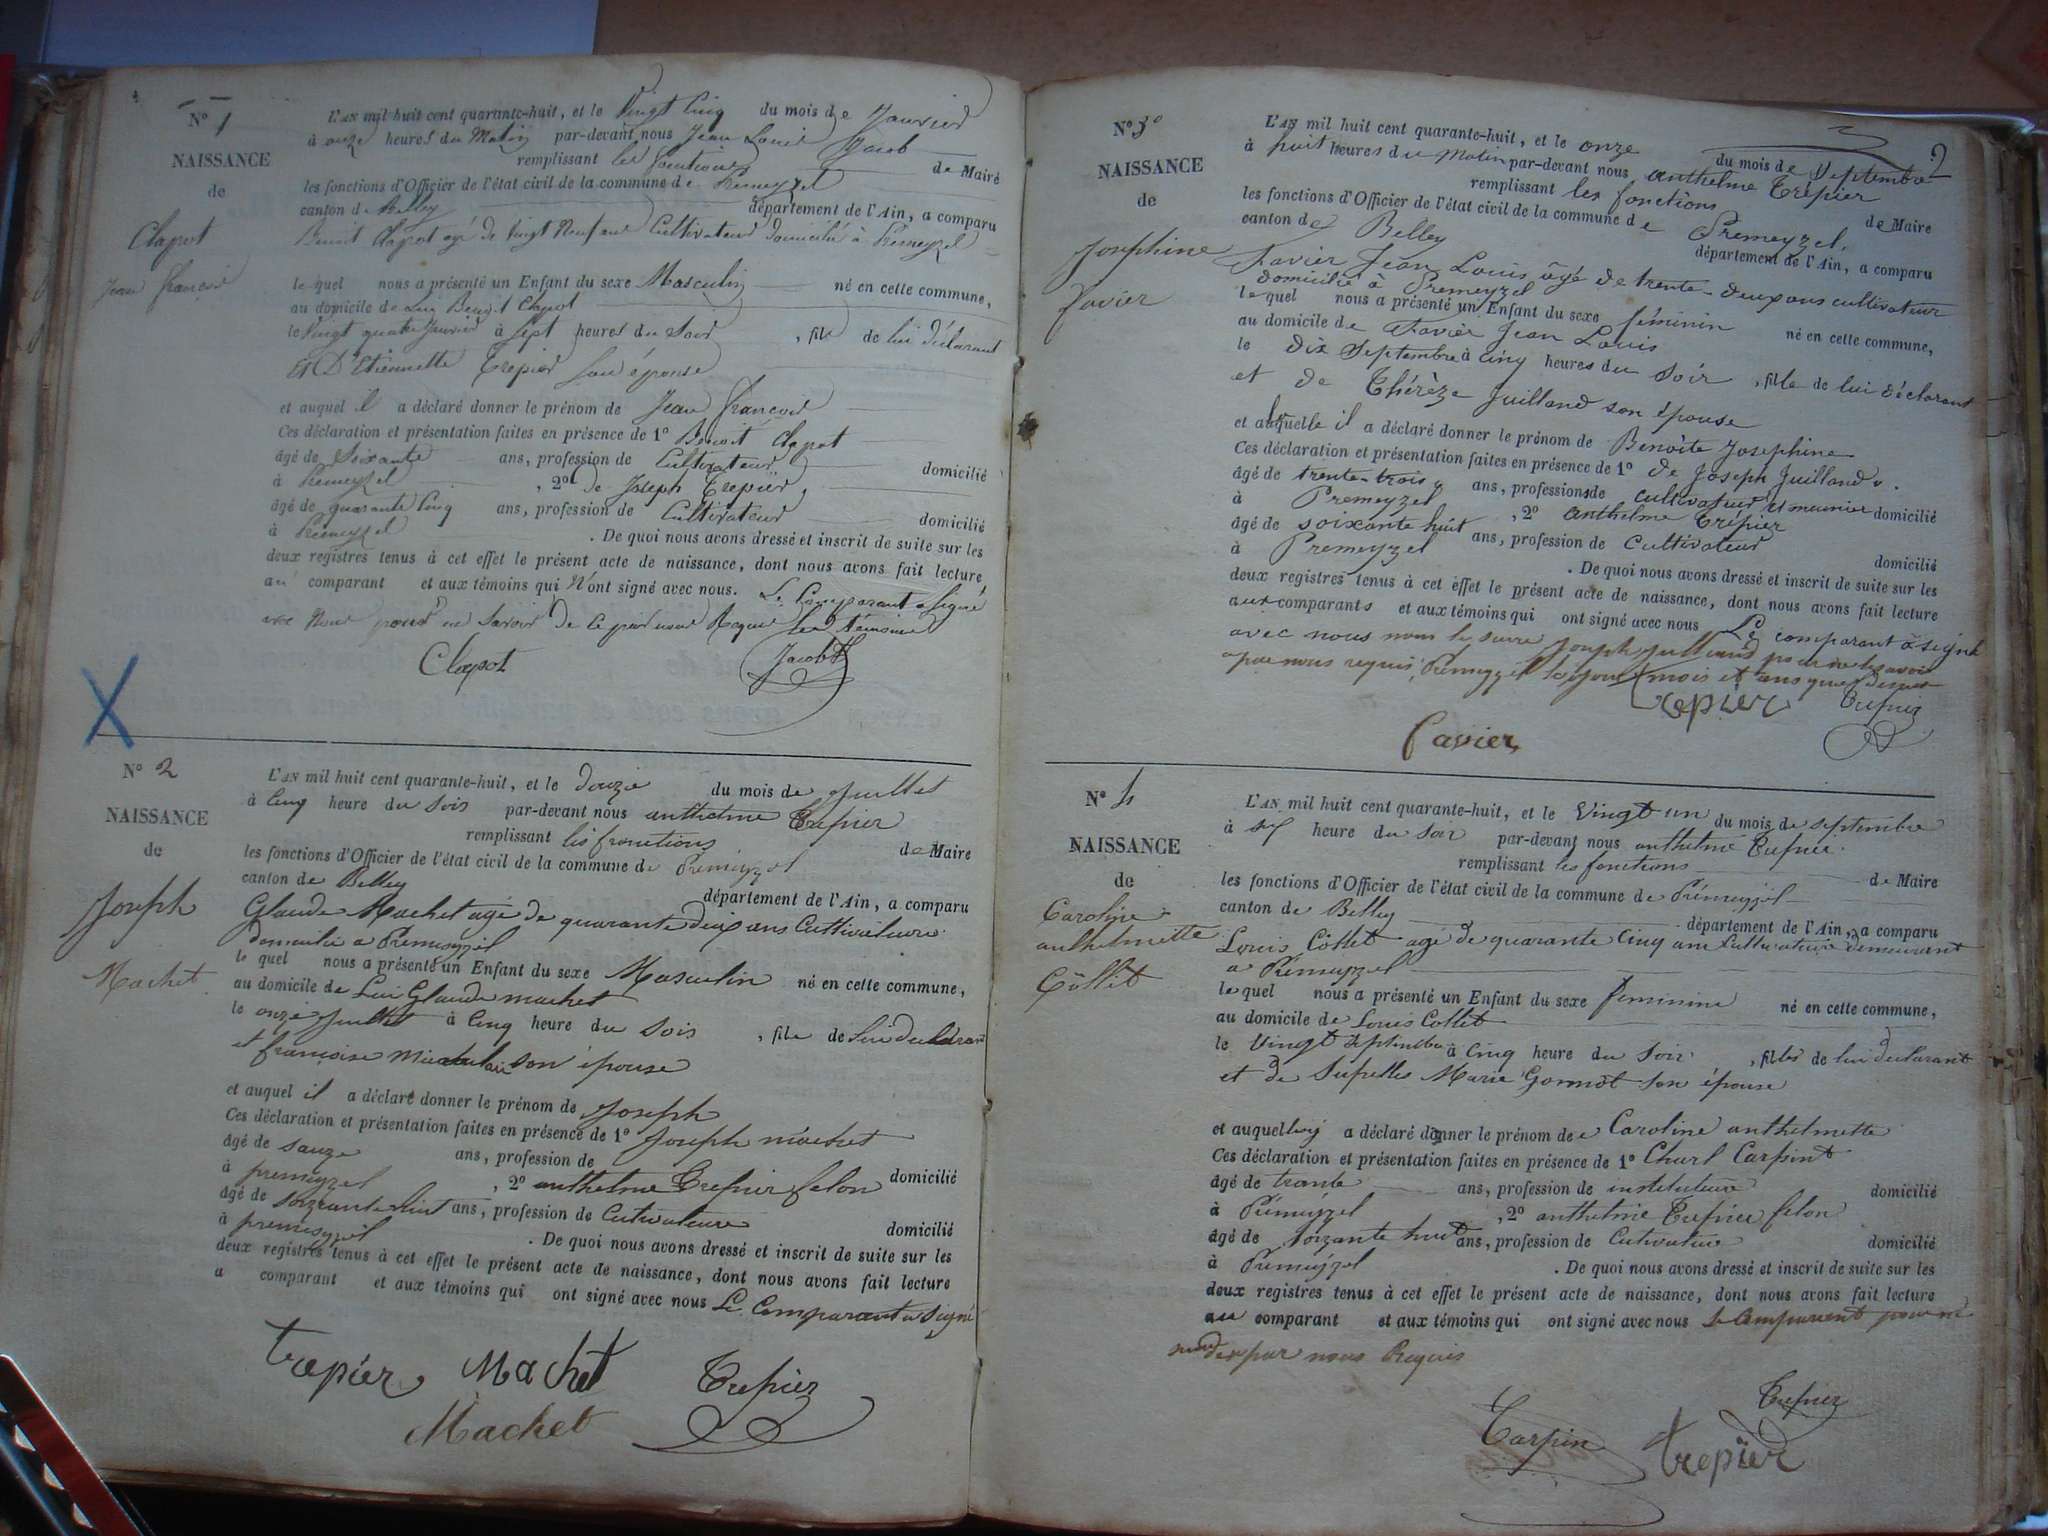 N° 1
NAISSANCE
de
Clapot
Jean françois
L'AN mil huit cent quarante-huit, et le Vingt Cinq du mois de Janvier
à onze heures du Matin par-devant nous Jean Louis Jacob
remplissant les fonctions de Maire
les fonctions d'Officier de l'état civil de la commune de Premeyzel
canton de Belley département de l'Ain, a comparu
Benoit Clapot agé de vingt Neuf ans Cultivateur domicilié à Premeyzel
le quel nous a présenté un Enfant du sexe Masculin né en cette commune,
au domicile de Lui Benoit Clapot
le Vingt quatre Janvier à Sept heures du Soir , fils de lui déclarant
Et D'Etiennette Trepier son épouse
et auquel il a déclaré donner le prénom de Jean françois
Ces déclaration et présentation faites en présence de 1° Benoit Clapot
âgé de Soixante ans, profession de Cultivateur domicilié
à Premeyzel , 2° de Joseph Trepier,
âgé de quarante Cinq ans, profession de Cultivateur domicilié
à Premeyzel . De quoi nous avons dressé et inscrit de suite sur les
deux registres tenus à cet effet le présent acte de naissance, dont nous avons fait lecture
au comparant et aux témoins qui N'ont signé avec nous. Le Comparant a Signé
avec Nous pour ne Savoir de ce par nous Requis les témoins
Clapot Jacob
N° 2
NAISSANCE
de
Joseph
Machet
L'AN mil huit cent quarante-huit, et le douze du mois de Juillet
à Cinq heure du soir par-devant nous anthelme Trepier
remplissant les fronctions de Maire
les fonctions d'Officier de l'état civil de la commune de Prémeyzel
canton de Belley département de l'Ain, a comparu
Glaude Machet agé de quarante deux ans Cultivateure
domicilié a Premeyzel
le quel nous a présenté un Enfant du sexe Masculin né en cette commune,
au domicile de Lui Glaude machet
le onze Juillet à Cinq heure du Soir , fils de Lui declarant
et francoise son épouse
et auquel il a déclaré donner le prénom de Joseph
Ces déclaration et présentation faites en présence de 1° Joseph machet
âgé de sauze ans, profession de domicilié
à premeyzel , 2° anthelme Trepier felon
âgé de soizante huit ans, profession de Cutivateure domicilié
à premeyzel . De quoi nous avons dressé et inscrit de suite sur les
deux registres tenus à cet effet le présent acte de naissance, dont nous avons fait lecture
a comparant et aux témoins qui ont signé avec nous Le Comparant a signé
trepier Machet Trepier
Machet
2
N° 3°
NAISSANCE
de
Josephine
Favier
L'AN mil huit cent quarante-huit, et le onze du mois de Septembre
à huit heures du Matin par-devant nous anthelme Trépier
remplissant les fonctions de Maire
les fonctions d'Officier de l'état civil de la commune de Premeyzel,
canton de Belley département de l'Ain, a comparu
Favier Jean Louis âgé de trente-deux ans cultivateur
domicilié à Premeyzel
le quel nous a présenté un Enfant du sexe féminin né en cette commune,
au domicile de Favier Jean Louis
le dix Septembre à cinq heures du soir , fille de lui déclarant
et de Thérèze Juilland son épouse
et à laquelle il a déclaré donner le prénom de Benoite Josephine
Ces déclaration et présentation faites en présence de 1° de Joseph Juilland
âgé de trente-trois ans, profession de cultivateur et meunier domicilié
à Premeyzel , 2° anthelme Trépier
âgé de soixante huit ans, profession de cultivateur domicilié
à Premeyzel . De quoi nous avons dressé et inscrit de suite sur les
deux registres tenus à cet effet le présent acte de naissance, dont nous avons fait lecture
aux comparants et aux témoins qui ont signé avec nous Le comparant à signé
avec nous non le sieur Joseph Juilland pour ne le savoir
a par nous requis, Prémeyzel les jour mois et ans que dessus
trepier Trepier
favier
N° 4
NAISSANCE
de
Caroline
anthelmette
Collet
L'AN mil huit cent quarante-huit, et le Vingt un du mois de septembre
à sept heure du soir par-devant nous anthelme Trepier
remplissant les fonctions de Maire
les fonctions d'Officier de l'état civil de la commune de Prémeyzel
canton de Belley département de l'Ain, a comparu
Louis Collet agé de quarante cinq ans Cultivateure demeurant
a Prémeyzel
le quel nous a présenté un Enfant du sexe feminine né en cette commune,
au domicile de Louis Collet
le Vingt septembre à Cinq heure du Soir , filles de lui declarant
et de Marie Gonnot son épouse
et auquel a déclaré donner le prénom de Caroline anthelmette
Ces déclaration et présentation faites en présence de 1° Charl Carpint
âgé de trante ans, profession de instituteure domicilié
à Prémeyzel , 2° anthelme Trepier felon
âgé de soizante huit ans, profession de Cutivature domicilié
à Prémeyzel . De quoi nous avons dressé et inscrit de suite sur les
deux registres tenus à cet effet le présent acte de naissance, dont nous avons fait lecture
au comparant et aux témoins qui ont signé avec nous le Comparent pour ne
par nous Requis
Trepier
Carpin trepier